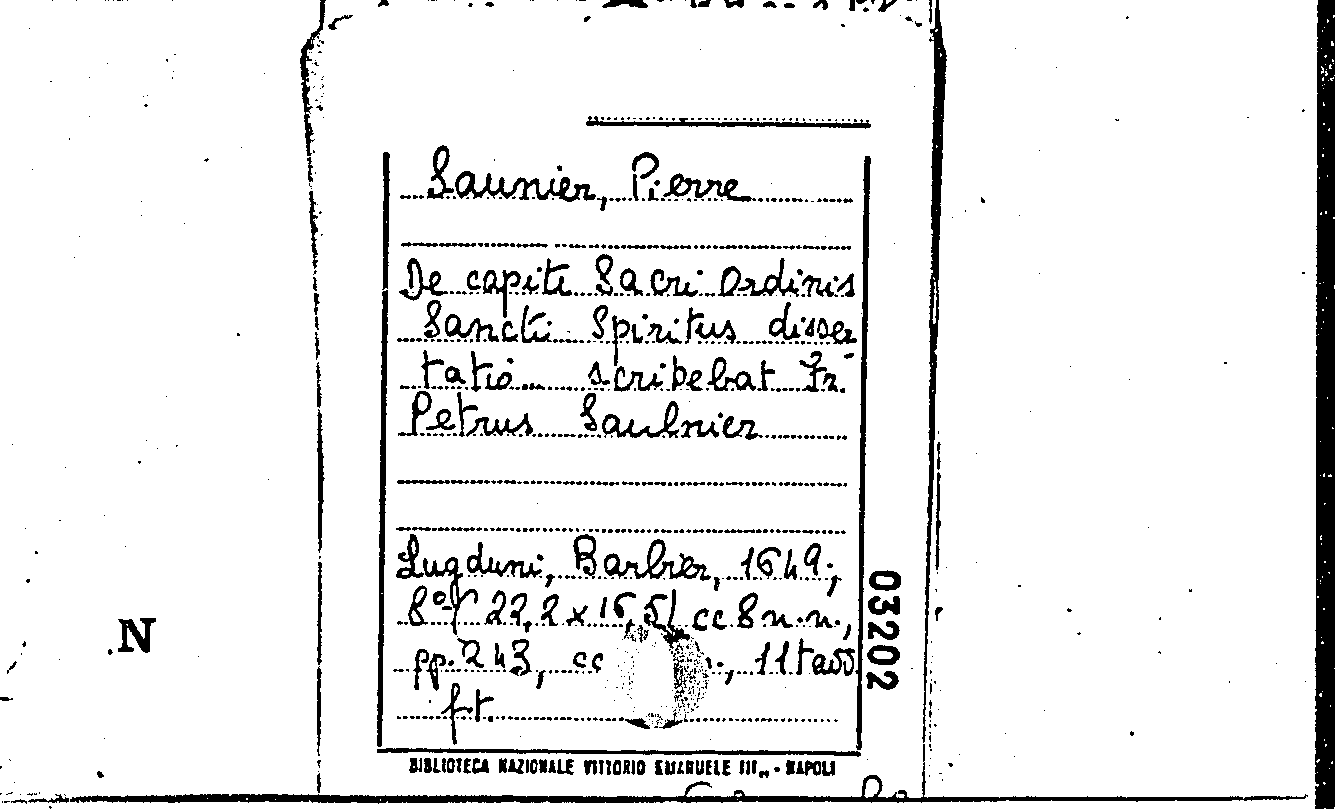 Saunier, Pierre
De capiti Sacri Ordinis
Sancti Spiritus disser
tatio scribebat Fr.
Petrus Saulnier
Lugduni, Barbier, 1649;
8° ( 22,2 x 16,5) cc 8 n.n.,
pp. 243, cc ., 11 tavv
ft.
BIBLIOTECA NAZIONALE VITTORIO EMANUELE III,, - NAPOLI
03202
N